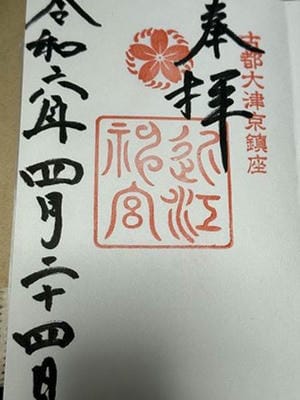 古都大津京鎮座
奉拝
近江神宮
令和六年四月二十四日